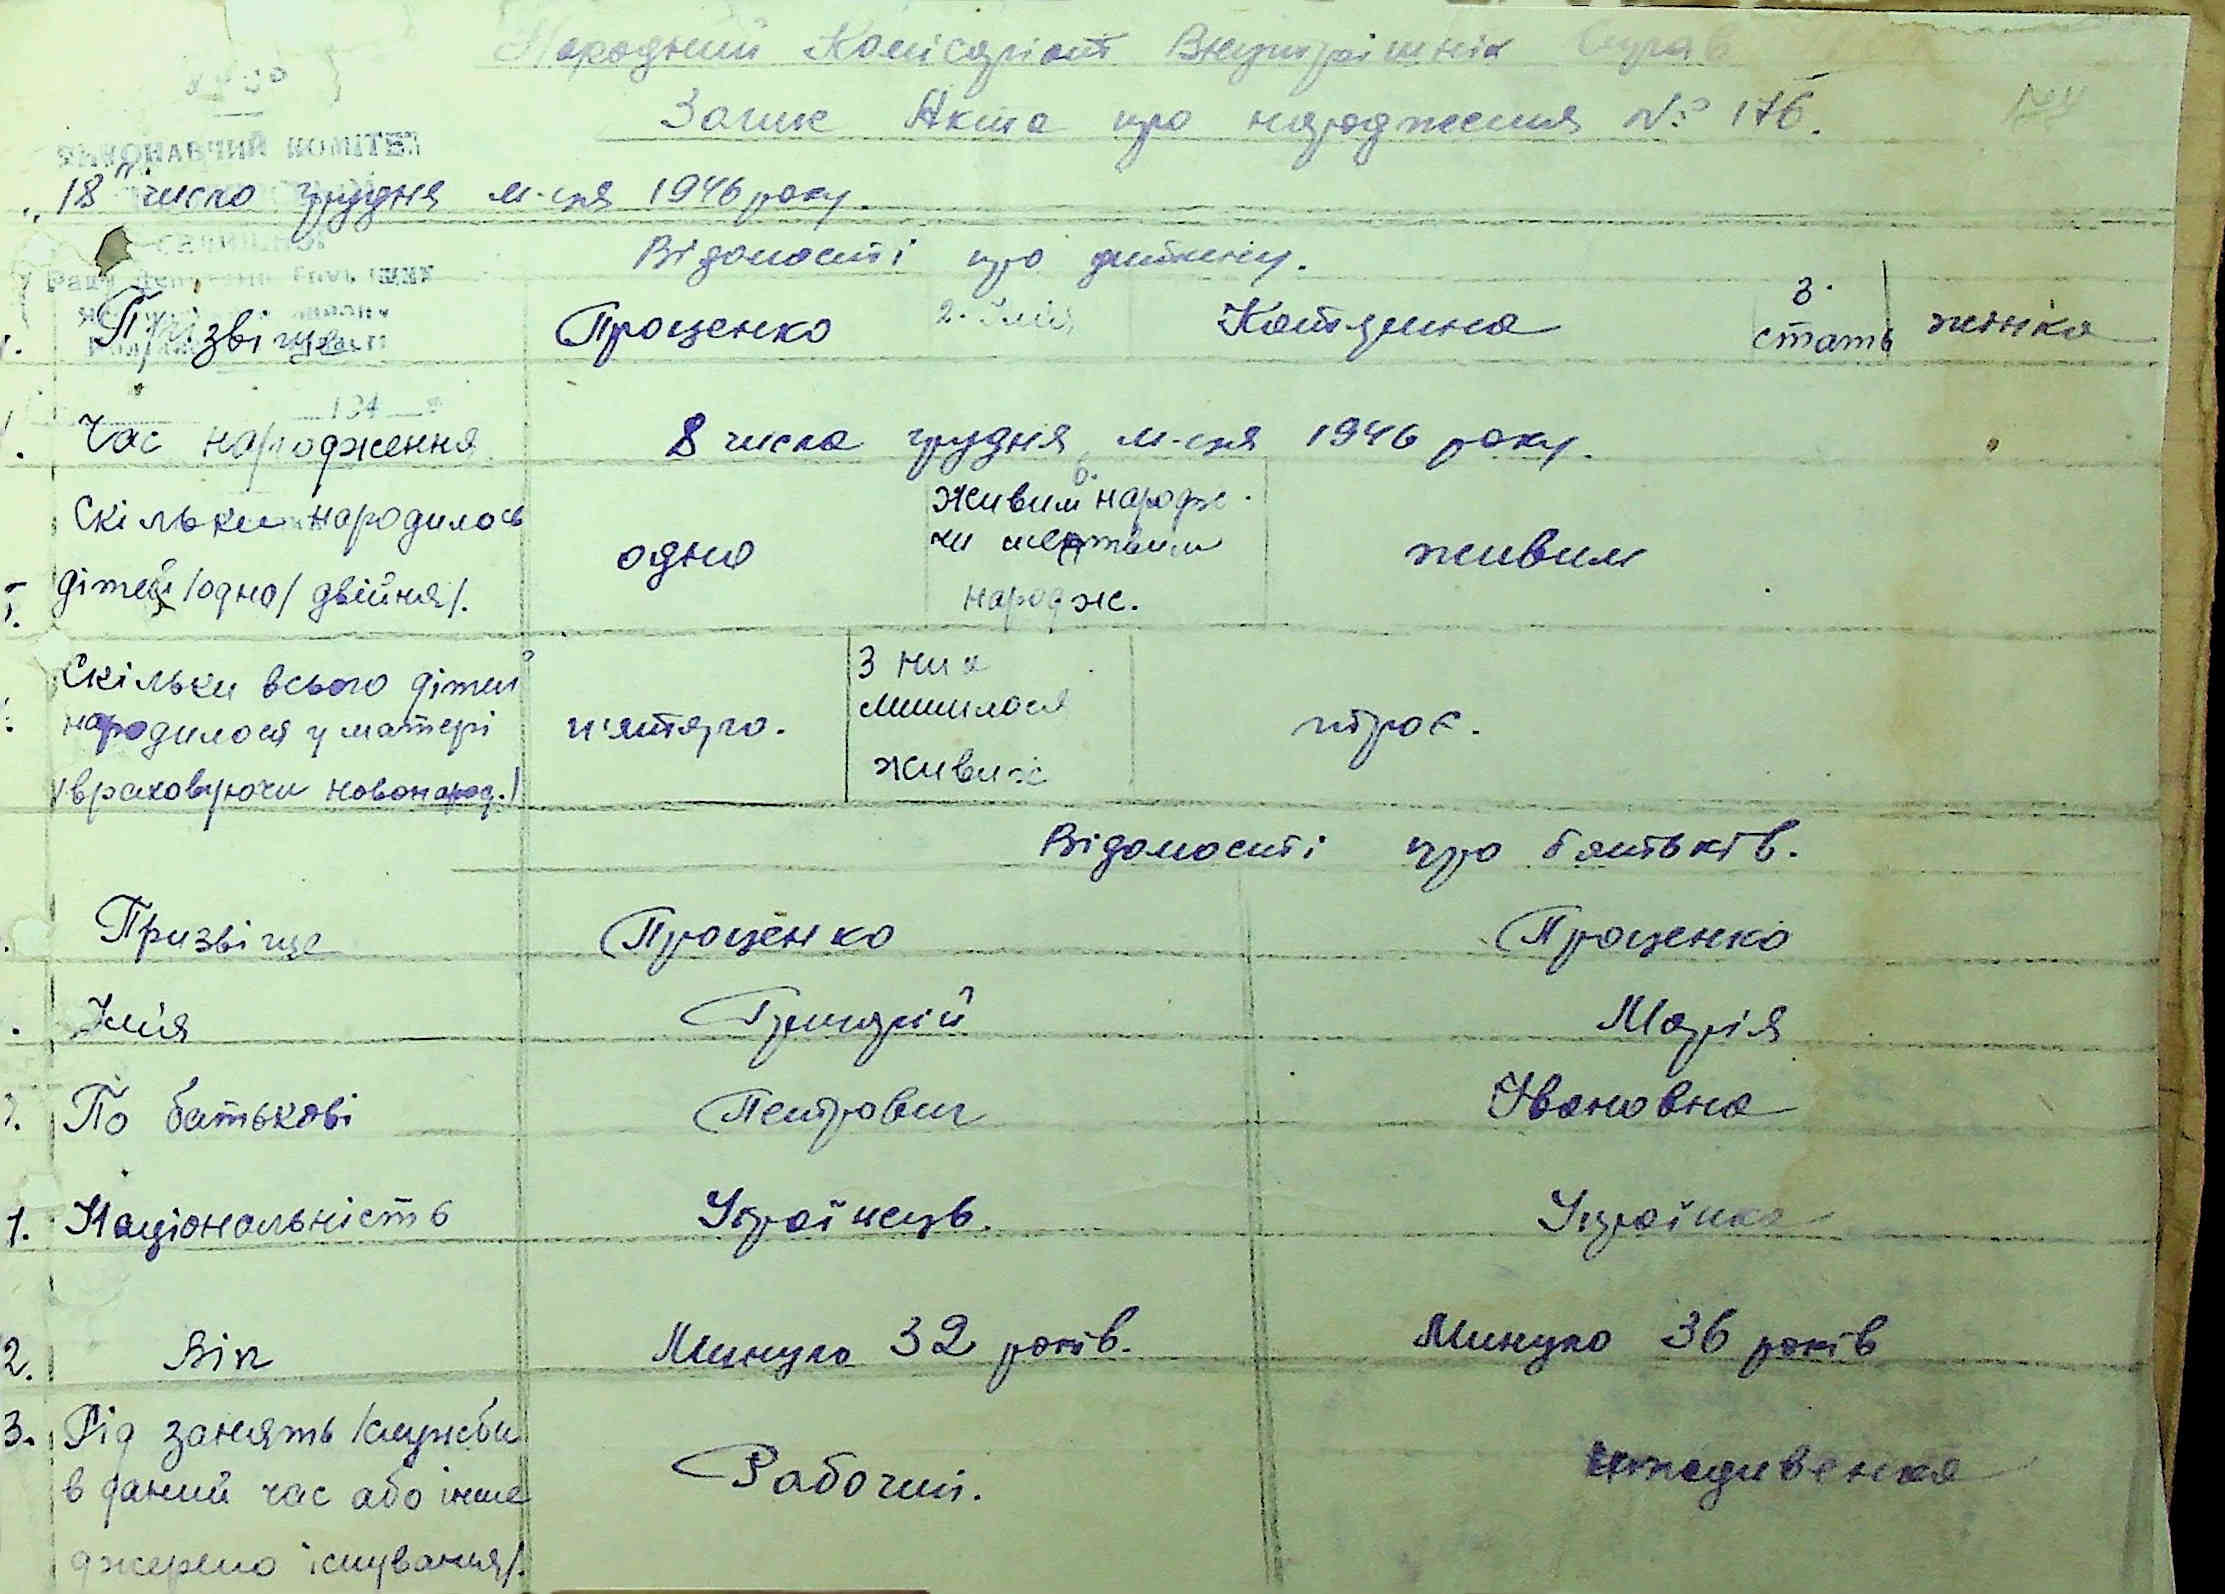 Народний Комісаріат Внутрішніх Справ
Запис Акта про народження № 176.
ВИКОНАВЧИЙ КОМІТЕТ
„18" число грудня м-ця 1946 року.
Відомості про дитину.
Призвіще Проценко 2. Імія Катерина 3. стать жінка
194
Час народження 8 числа грудня м-ця 1946 року.
Скільки народилось дітей /одно/ двійня/. одно
6. Живим народж. чи мертвим народж. живим
Скільки всього дітей народилося у матері /враховуючи новонарод./ п'ятеро.
З них лишилося живих троє.
Відомості про батьків.
Призвіще Проценко Проценко
Імія Григорій Марія
По батькові Петрович Івановна
1. Національність Українець. Українка
2. Вік Минуло 32 років. Минуло 36 років
3. Рід занять /служби в даний час або інше джерело існування/. Рабочий. иждивенка